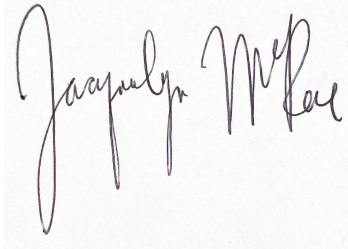 Jacquelyn McRae